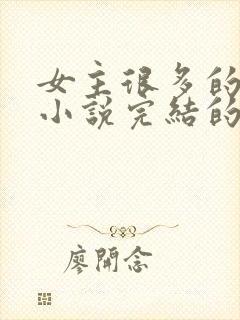 女主很多的
小說完結的
廖開念